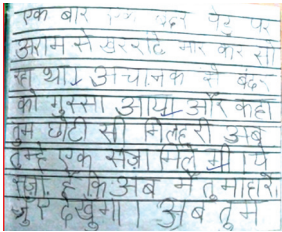 एक बार एक बंदर पेड़ पर
अराम से खरराहि मार कर सो
रहा था। अचानक से बंदर
को गुस्सा आया और कहा
तुम छोटी सी गिलहरी अब
तुम्हे एक सज़ा मिले गी। ये
सज़ा है कि अब मैं तुमाहारे
देखुगा। अब तुम